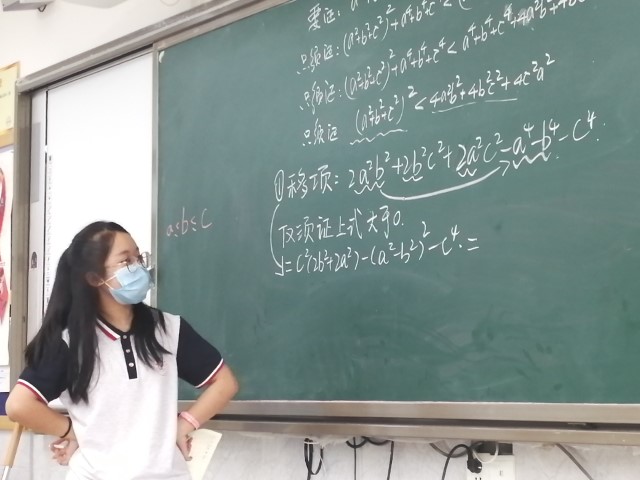 要证:
只须证: (a²+b²+c²)²+a⁴+b⁴+c⁴ <
只须证: (a²+b²+c²)²+a⁴+b⁴+c⁴ < a⁴+b⁴+c⁴+4a²b²+4b
只须证 (a²+b²+c²)² < 4a²b²+4b²c²+4c²a²
①移项: 2a²b²+2b²c²+2a²c²-a⁴-b⁴-c⁴.
仅须证上式大于0.
=c²(2b²+2a²)-(a²-b²)²-c⁴. =
a≤b≤c